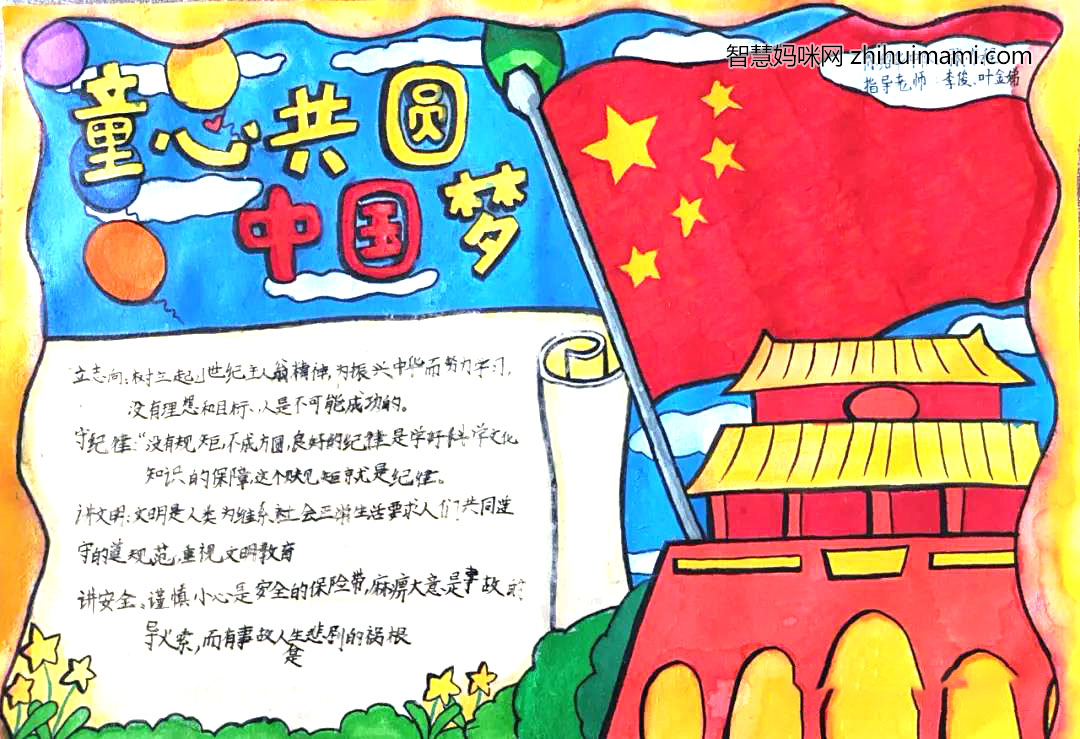 智慧妈咪网 zhihuimami.com
指导老师:李俊、叶金娣
童心共圆
中国梦
立志向:树立起21世纪主人翁精神,为振兴中华而努力学习,
没有理想和目标、人是不可能成功的。
守纪律:"没有规矩不成方圆,良好的纪律是学好科学文化
知识的保障,这个规矩就是纪律。
讲文明:文明是人类为维系社会正常生活要求人们共同遵
守的道规范,重视文明教育
讲安全、谨慎小心是安全的保险带,麻痹大意是事故的
导火索,而有事故人生悲剧的祸根
是